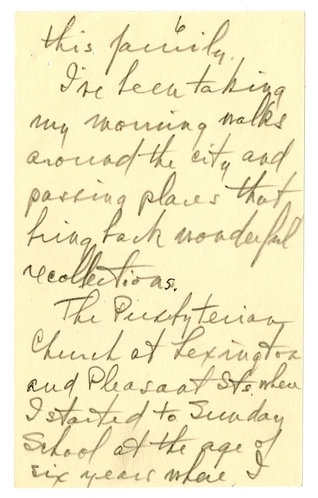 6
this family.
I've been taking
my morning walks
around the city and
passing places that
bring back wonderful
recollections.
The Presbyterian
Church at Lexington
and Pleasant Sts where
I started to Sunday
School at the age of
six years where I